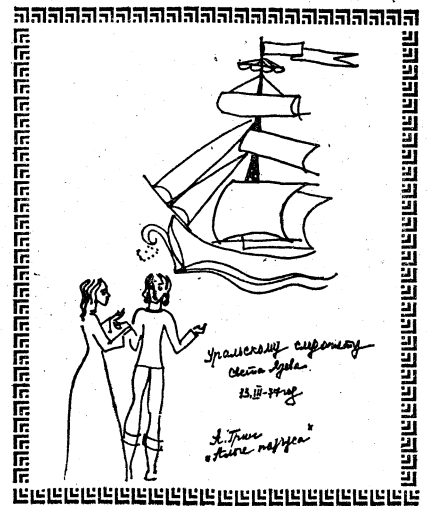 Уральскому следопыту
Света Язева.
23.III-77 год
А. Грин
„Алые паруса"